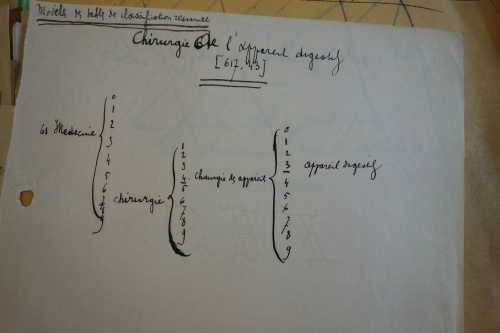 Modèle de table de classification résumée
Chirurgie de l'appareil digestif
[617.43]
61 Medecine
0
1
2
3
4
5
6
7
8
9
chirurgie
1
2
3
4
5
6
7
8
9
Chirurgie des appareil
0
1
2
3
4
5
6
7
8
9
appareil digestif